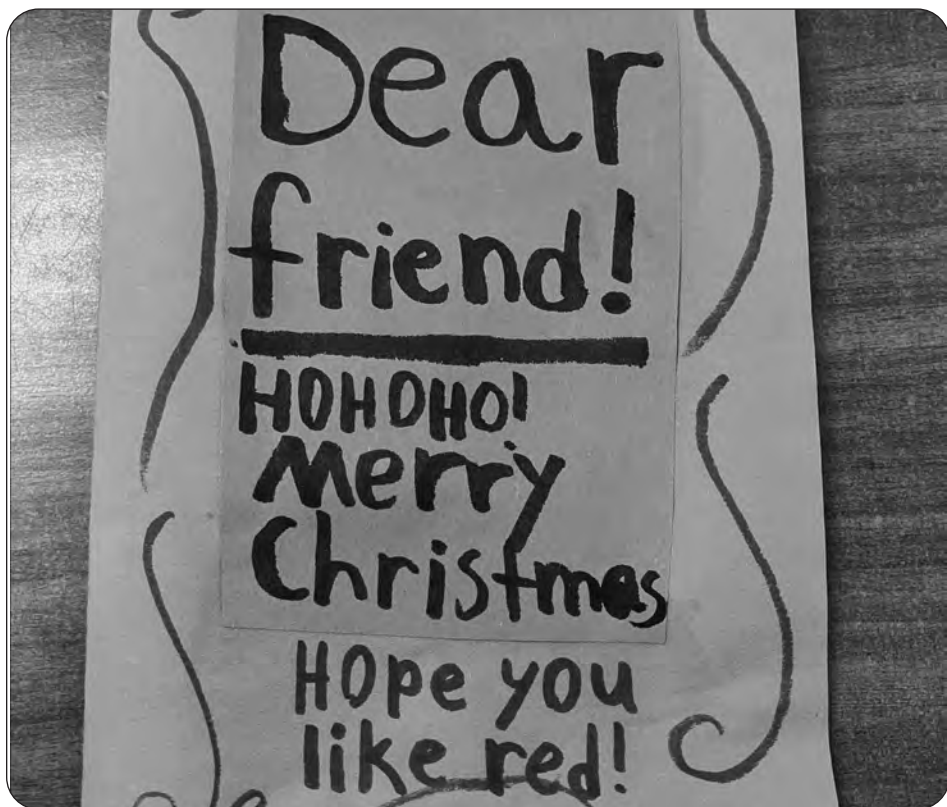 Dear
friend!
HOHOHO!
Merry
Christmas
Hope you
like red!